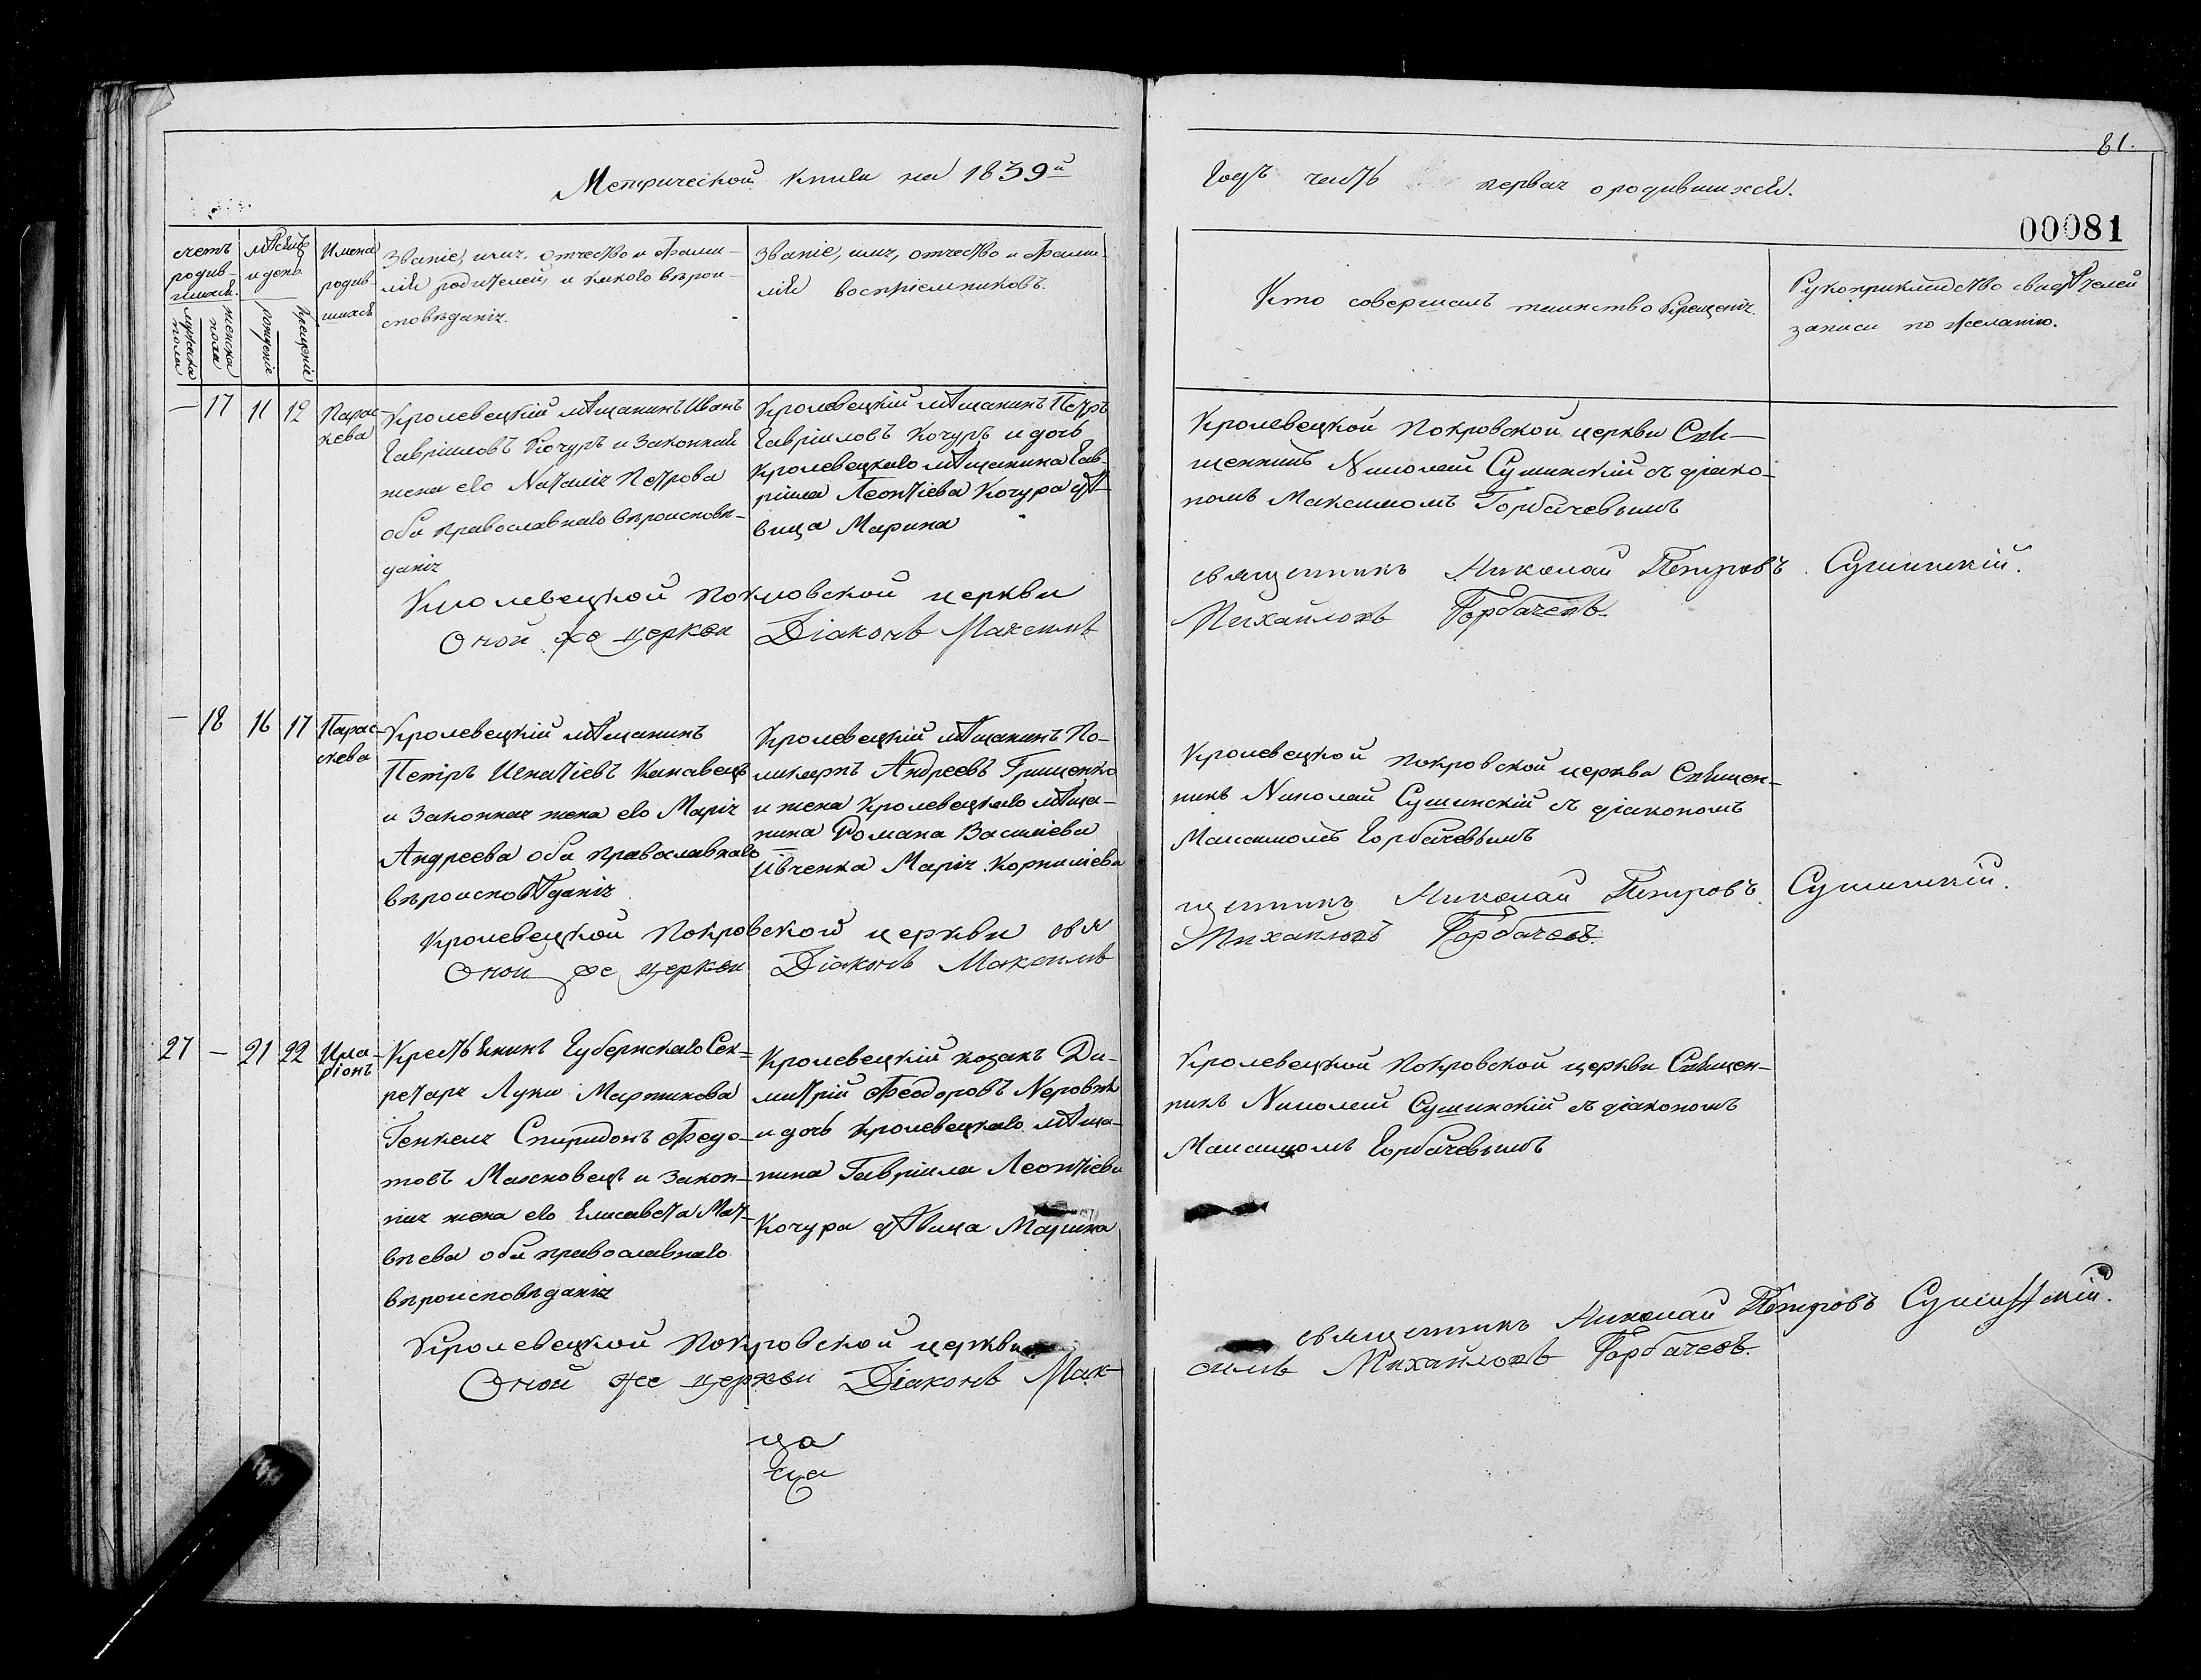 Метрической книги на 1839й
Годъ часть первая о родившихся.
81.
00081
счетъ родив-шихся.
мужеска пола
женска пола
мѣсяцъ и день.
рожденіе
крещеніе
Имена родив-шихся
Званіе, имя, отчество и фами-
лія родителей, и какого вѣрои-
сповѣданія.
Званіе, имя, отчество и фами-
лія воспріемниковъ.
Кто совершалъ таинство Крещенія.
Рукоприкладство свидѣтелей
записи по желанію.
— 17 11 12
Парас-
кева
Кролевецкій мѣщанинъ Иванъ
Гавріиловъ Кочуръ и законная
жена его Наталія Петрова
оба православнаго вѣроисповѣ-
данія
Кролевецкій мѣщанинъ Петръ
Гавріиловъ Кочуръ и дочь
Кролевецкаго мѣщанина Гав-
ріила Леонтіева Кочура дѣ-
вица Марина
Кролевецкой Покровской церкви Свя-
щенникъ Николай Сушинскій съ діако-
номъ Максимомъ Горбачевымъ
Кролевецкой Покровской церкви священникъ Николай Петровъ Сушинскій.
Оной же церкви Діаконъ Максимъ Михайловъ Горбачевъ.
— 18 16 17
Парас-
кева
Кролевецкій мѣщанинъ
Петръ Игнатіевъ Канавецъ
и законная жена его Марія
Андреева оба православнаго
вѣроисповѣданія
Кролевецкій мѣщанинъ По-
ликарпъ Андреевъ Грищенко
и жена Кролевецкаго мѣща-
нина Романа Василіева
Ивченка Марія Корниліева
Кролевецкой Покровской церкви Священ-
никъ Николай Сушинскій съ діакономъ
Максимомъ Горбачевымъ
Кролевецкой Покровской церкви свя щенникъ Николай Петровъ Сушинскій.
Оной же церкви Діаконъ Максимъ Михайловъ Горбачевъ.
27 — 21 22
Ила-
ріонъ
Крестьянинъ Губернскаго Сек-
ретаря Луки Мартинова
Генкеля Спиридонъ Федо-
товъ Махновецъ и закон-
ная жена его Елисавета Мат-
вѣева оба православнаго
вѣроисповѣданія
Кролевецкій козакъ Ди-
митрій Феодоровъ Неровня
и дочь Кролевецкаго мѣща-
нина Гавріила Леонтіева
Кочура дѣвица Марина
Кролевецкой Покровской церкви Священ-
никъ Николай Сушинскій съ діакономъ
Максимомъ Горбачевымъ
Кролевецкой Покровской церкви священникъ Николай Петровъ Сушинскій.
Оной же церкви Діаконъ Мак-
симъ Михайловъ Горбачевъ.